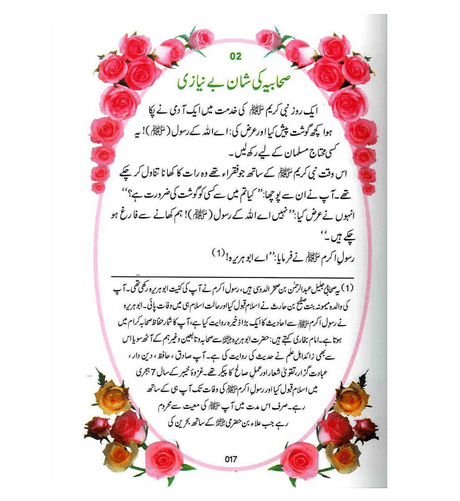 02
صحابیہ کی شان بے نیازی
ایک روز نبی کریم ﷺ کی خدمت میں ایک آدمی نے پکا
ہوا کچھ گوشت پیش کیا اور عرض کی: اے اللہ کے رسول (ﷺ)! یہ
کسی محتاج مسلمان کے لیے رکھ لیں۔
اس وقت نبی کریم ﷺ کے ساتھ جو فقراء تھے وہ رات کا کھانا تناول کر چکے
تھے۔ آپ نے ان سے پوچھا: ’’کیا تم میں سے کسی کو گوشت کی ضرورت ہے؟‘‘
انہوں نے عرض کیا: ’’نہیں اے اللہ کے رسول (ﷺ)! ہم کھانے سے فارغ ہو
چکے ہیں۔‘‘
رسول اکرم ﷺ نے فرمایا: ’’اے ابوہریرہ! (1)
(1) یہ صحابی جلیل عبدالرحمٰن بن صخر الدوسی ہیں، رسول اکرم نے آپ کی کنیت ابوہریرہ رکھی تھی۔ آپ
کی والدہ میمونہ بنت صفیح بن حارث نے اسلام قبول کیا اور حالت اسلام ہی میں وفات پائی۔ ابوہریرہ
نے رسول اکرم ﷺ سے احادیث کا ایک بڑا ذخیرہ روایت کیا ہے، آپ کا شمار حفاظ صحابہ کرام میں
ہوتا ہے۔ امام بخاری کہتے ہیں: حضرت ابوہریرہ سے صحابہ و تابعین وغیرہم کے آٹھ سو یا اس
سے بھی زائد اہل علم نے حدیث کی روایت کی ہے۔ آپ صادق، حافظ، دین دار،
عبادت گزار، تقویٰ شعار اور عمل صالح کا پیکر تھے۔ غزوۂ خیبر کے سال 7 ہجری
میں اسلام قبول کیا اور رسول اکرم ﷺ کی وفات تک آپ ہی کے ساتھ
رہے۔ صرف اس مدت میں آپ ﷺ کی معیت سے محروم
رہے جب علاء بن حضرمی کے ساتھ بحرین کی
017